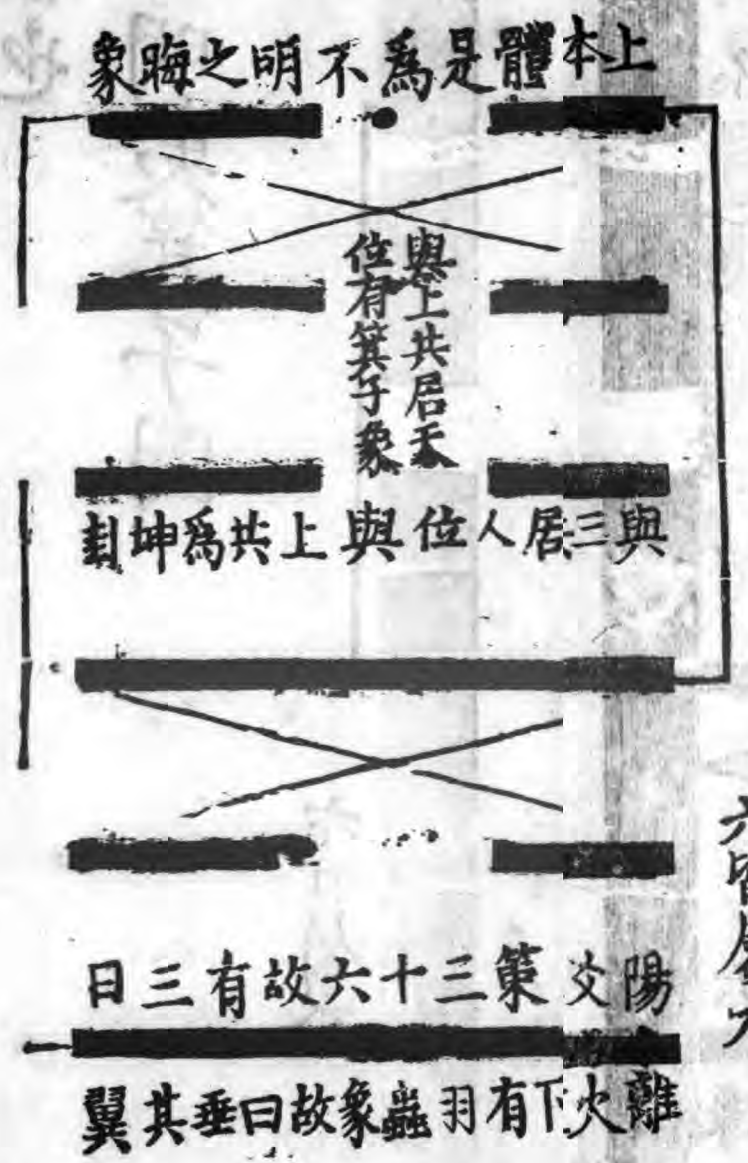 上本體是爲不明之晦象
與上共居天
位有箕子象
與三居人位與上共爲坤卦
陽爻策三十六故有三日
離火下有羽蟲象故曰垂其翼
六皆居